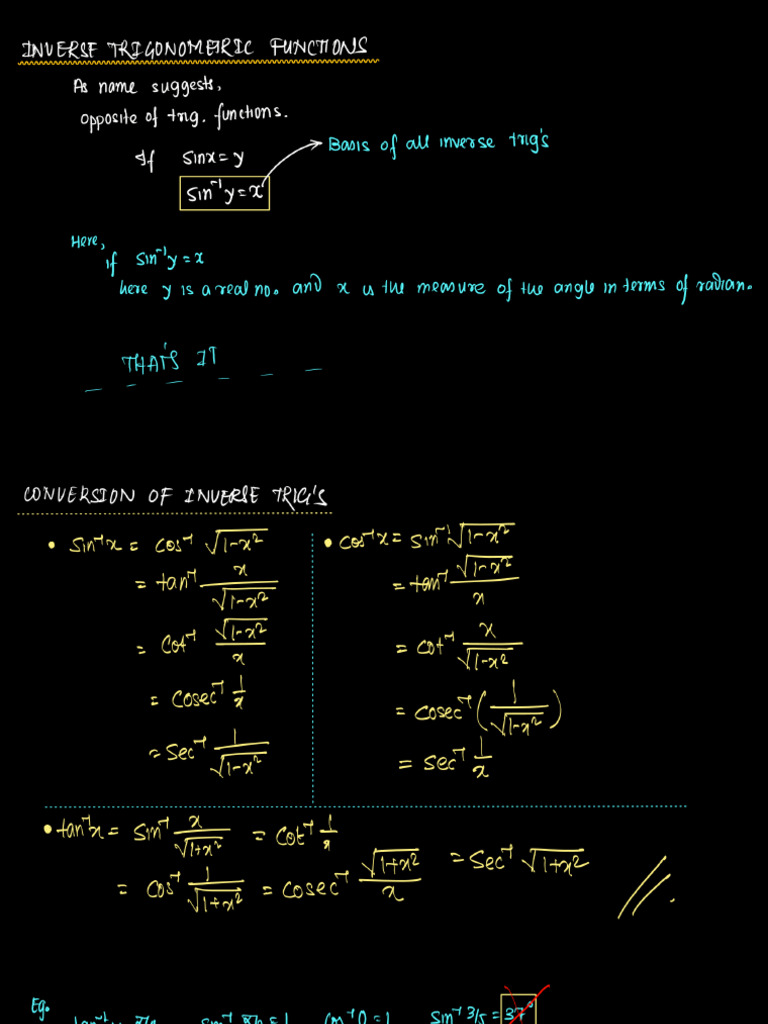 INVERSE TRIGONOMETRIC FUNCTIONS
As name suggests,
opposite of trig. functions.
If sinx = y
Basis of all inverse trig's
sin⁻¹y = x
Here,
if sin⁻¹y = x
here y is a real no. and x is the measure of the angle in terms of radian.
THAT'S IT
CONVERSION OF INVERSE TRIG'S
• sin⁻¹x = cos⁻¹ √(1-x²)
= tan⁻¹ x/√(1-x²)
= cot⁻¹ √(1-x²)/x
= cosec⁻¹ 1/x
= sec⁻¹ 1/√(1-x²)
• cos⁻¹x = sin⁻¹√(1-x²)
= tan⁻¹ √(1-x²)/x
= cot⁻¹ x/√(1-x²)
= cosec⁻¹ (1/√(1-x²))
= sec⁻¹ 1/x
• tan⁻¹x = sin⁻¹ x/√(1+x²) = cot⁻¹ 1/x
= cos⁻¹ 1/√(1+x²) = cosec⁻¹ √(1+x²)/x = sec⁻¹ √(1+x²)
Eg.
cos⁻¹ 0 = 1 sin⁻¹ 3/5 = 37°